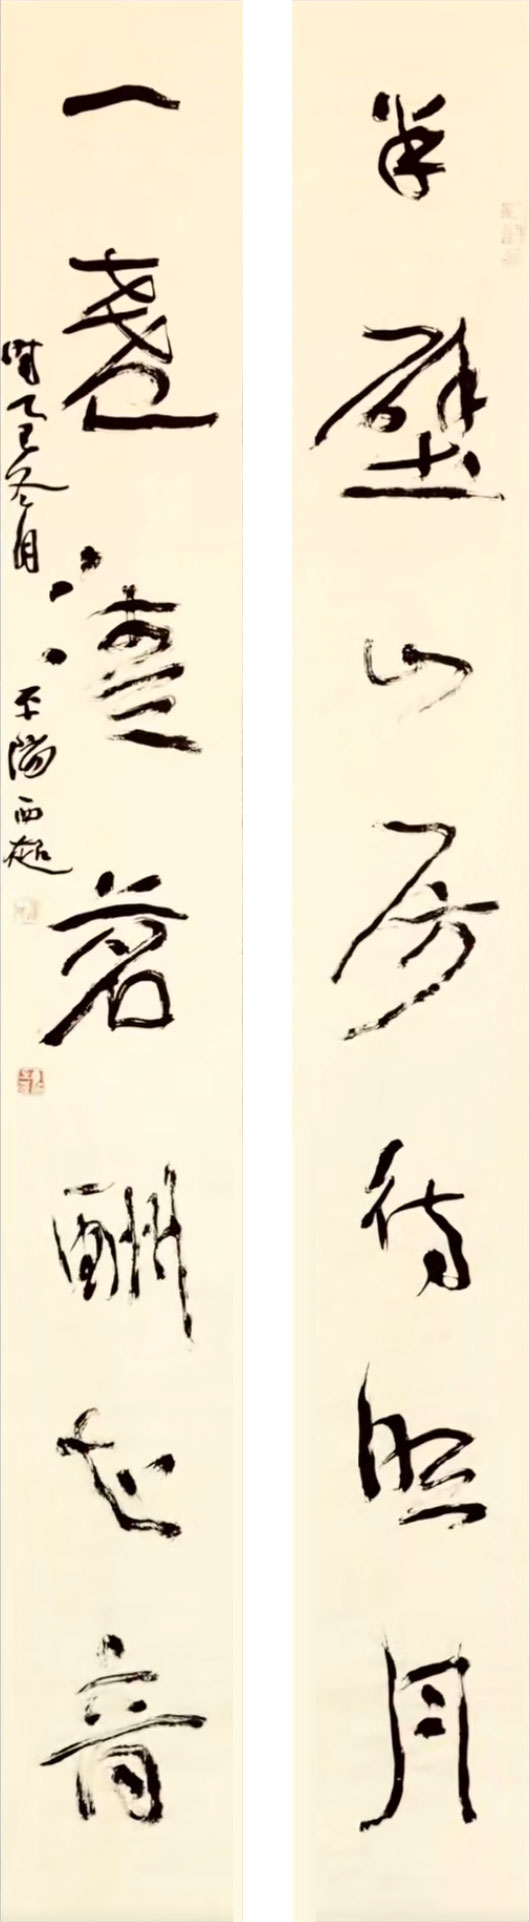 半壁山房待明月
一盞清茗酬知音
时乙巳冬月 平陽西超